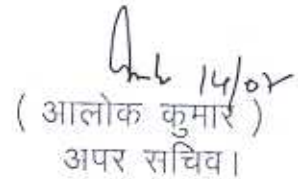 14/07
( आलोक कुमार )
अपर सचिव।